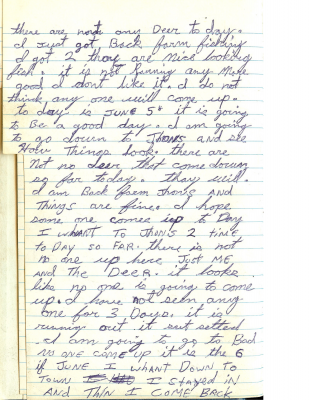 there are not any Deer to day.
I Just got Back form fishing
I got 2 thay are nice looking
fish. it is not Running any More
good I dont like it. I do not
think any one will come up.
to day is JUNE 5th it is going
to Be a good day. I am going
to go down to Jhons and see
How Things look. there are
Not no deer that come down
so far today. thay will.
I am Back form Jhons AND
Things are fine. I hope
some one comes up to Day
I WHANT TO JHONS 2 time
to DAY SO FAR. there is not
no one up here JUST ME
AND The DEER. it looks
like no one is going to come
up. I have not seen any
one for 3 Days. it is
running out it sut setted
I am going to go to Bed
no one come up it is the 6
if JUNE I WHANT DOWN TO
TOWN I STAYED IN
AND THIN I COME BACK